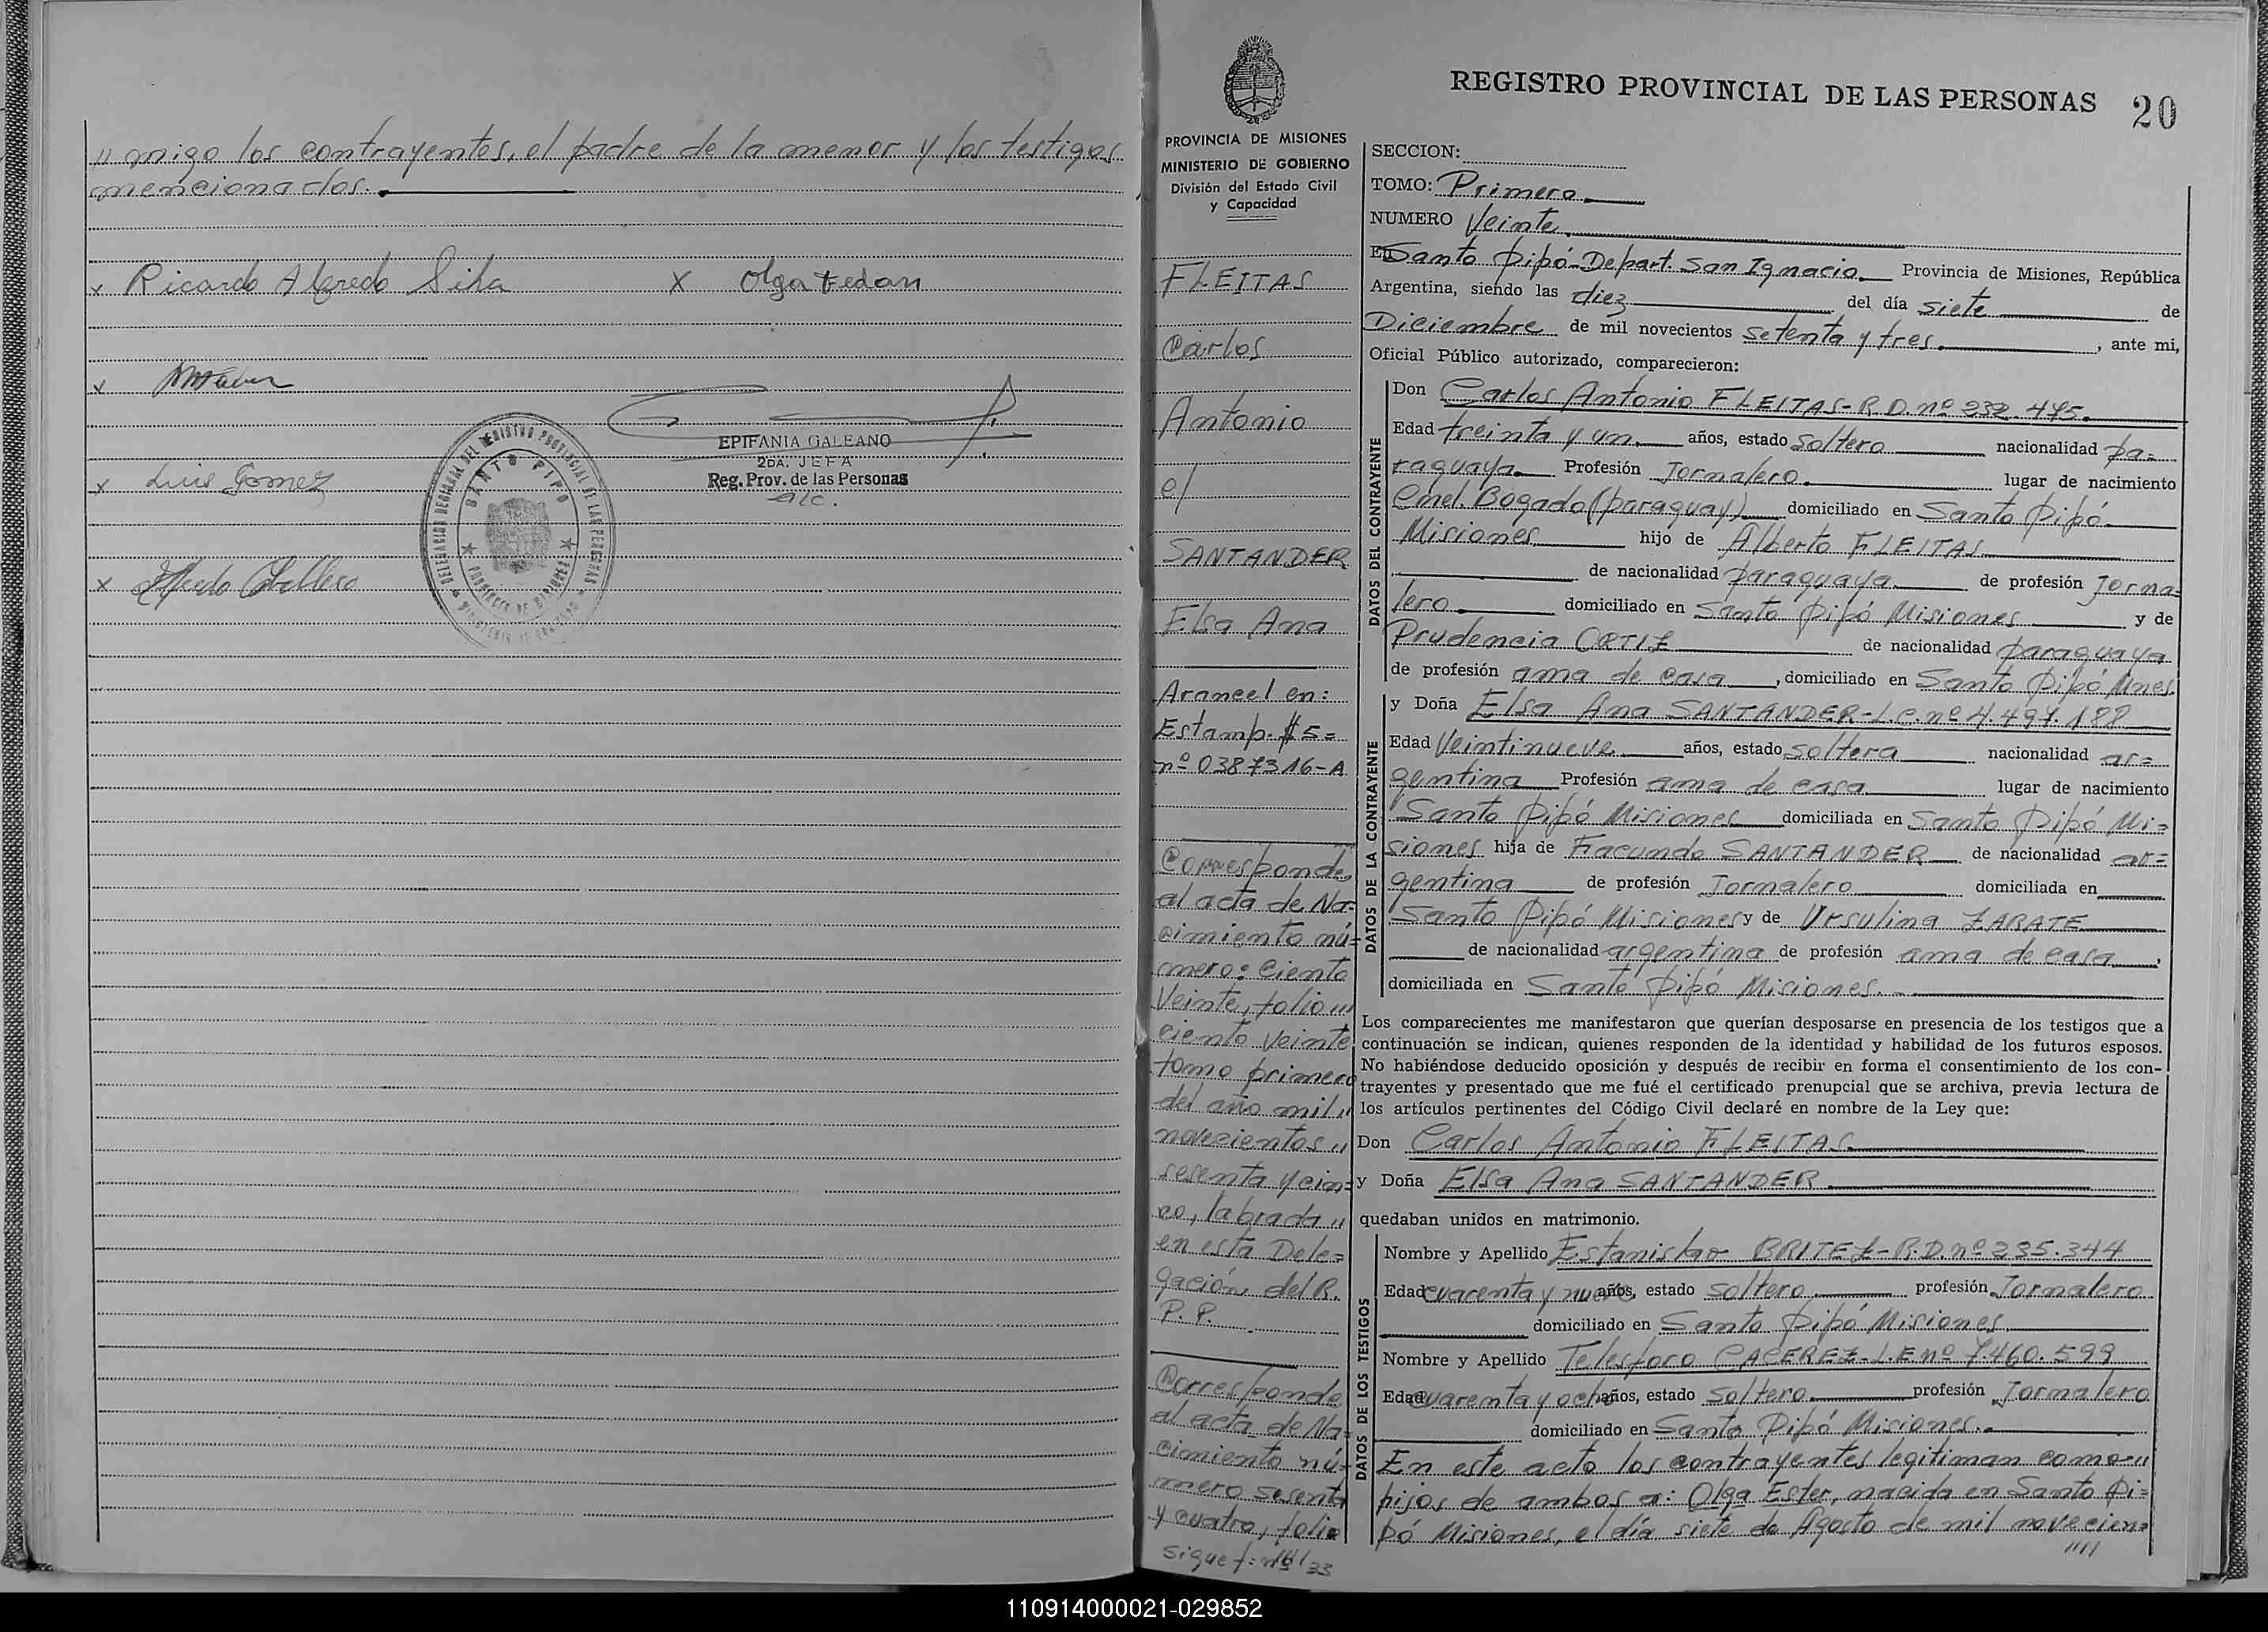 " migo los contrayentes, el padre de la menor y los testigos
mencionados.
x Ricardo Alfredo Silva x Olga Fedan
x
x Luis Gomez
x Alfredo Caballero
EPIFANIA GALEANO
2DA. JEFA
Reg. Prov. de las Personas
a/c.
SANTO PIPO
PROVINCIA DE MISIONES
MINISTERIO DE GOBIERNO
División del Estado Civil
y Capacidad
FLEITAS
Carlos
Antonio
c/
SANTANDER
Elsa Ana
Arancel en:
Estamp. $5=
nº 0387316-A
Corresponde
al acta de Na-
cimiento nú=
mero: Ciento
Veinte, folio "
ciento veinte
tomo primero
del año mil "
novecientos "
sesenta y cin=
co, labrada "
en esta Dele=
gación del R.
P. P.
Corresponde
al acta de Na=
cimiento nú=
mero sesenta
y cuatro, folio
sigue f:
REGISTRO PROVINCIAL DE LAS PERSONAS 20
SECCION:
TOMO: Primero
NUMERO Veinte
En Santo Pipó-Depart. San Ignacio Provincia de Misiones, República
Argentina, siendo las diez del día siete de
Diciembre de mil novecientos setenta y tres, ante mi,
Oficial Público autorizado, comparecieron:
DATOS DEL CONTRAYENTE
Don Carlos Antonio FLEITAS-R.D. nº 232.475.
Edad treinta y un años, estado soltero nacionalidad pa=
raguaya Profesión Jornalero lugar de nacimiento
Cnel. Bogado (paraguay) domiciliado en Santo Pipó
Misiones hijo de Alberto FLEITAS
de nacionalidad paraguaya de profesión Jorna=
lero domiciliado en Santo Pipó Misiones y de
Prudencia ORTIZ de nacionalidad paraguaya
de profesión ama de casa, domiciliado en Santo Pipó Mnes.
DATOS DE LA CONTRAYENTE
y Doña Elsa Ana SANTANDER-L.C. nº 4.497.188
Edad Veintinueve años, estado soltera nacionalidad ar=
gentina Profesión ama de casa lugar de nacimiento
Santo Pipó Misiones domiciliada en Santo Pipó Mi=
siones hija de Facundo SANTANDER de nacionalidad ar=
gentina de profesión Jornalero domiciliada en
Santo Pipó Misiones y de Ursulina ZARATE
de nacionalidad argentina de profesión ama de casa,
domiciliada en Santo Pipó Misiones.
Los comparecientes me manifestaron que querían desposarse en presencia de los testigos que a
continuación se indican, quienes responden de la identidad y habilidad de los futuros esposos.
No habiéndose deducido oposición y después de recibir en forma el consentimiento de los con-
trayentes y presentado que me fué el certificado prenupcial que se archiva, previa lectura de
los artículos pertinentes del Código Civil declaré en nombre de la Ley que:
Don Carlos Antonio FLEITAS
y Doña Elsa Ana SANTANDER
quedaban unidos en matrimonio.
DATOS DE LOS TESTIGOS
Nombre y Apellido Estanislao BRITEZ-R.D. nº 235.344
Edad cuarenta y nueve años, estado soltero profesión Jornalero
domiciliado en Santo Pipó Misiones
Nombre y Apellido Telesforo CACEREZ-L.E. nº 7.460.599
Edad cuarenta y ocho años, estado soltero profesión Jornalero
domiciliado en Santo Pipó Misiones.
En este acto los contrayentes legitiman como "
hijos de ambos a: Olga Ester, nacida en Santo Pi=
pó Misiones, el día siete de Agosto de mil novecien=
////
110914000021-029852